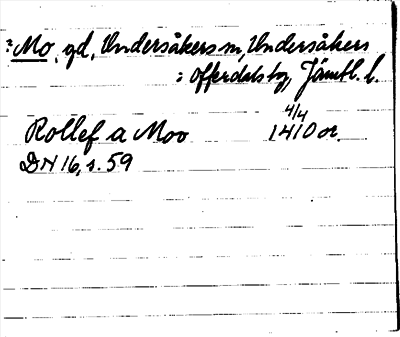 :Mo, gd, Undersåkers sn, Undersåkers
: Offerdals tg, Jämtl. l.
4/4
Rollef a Moo 1410 or.
DN 16, s. 59